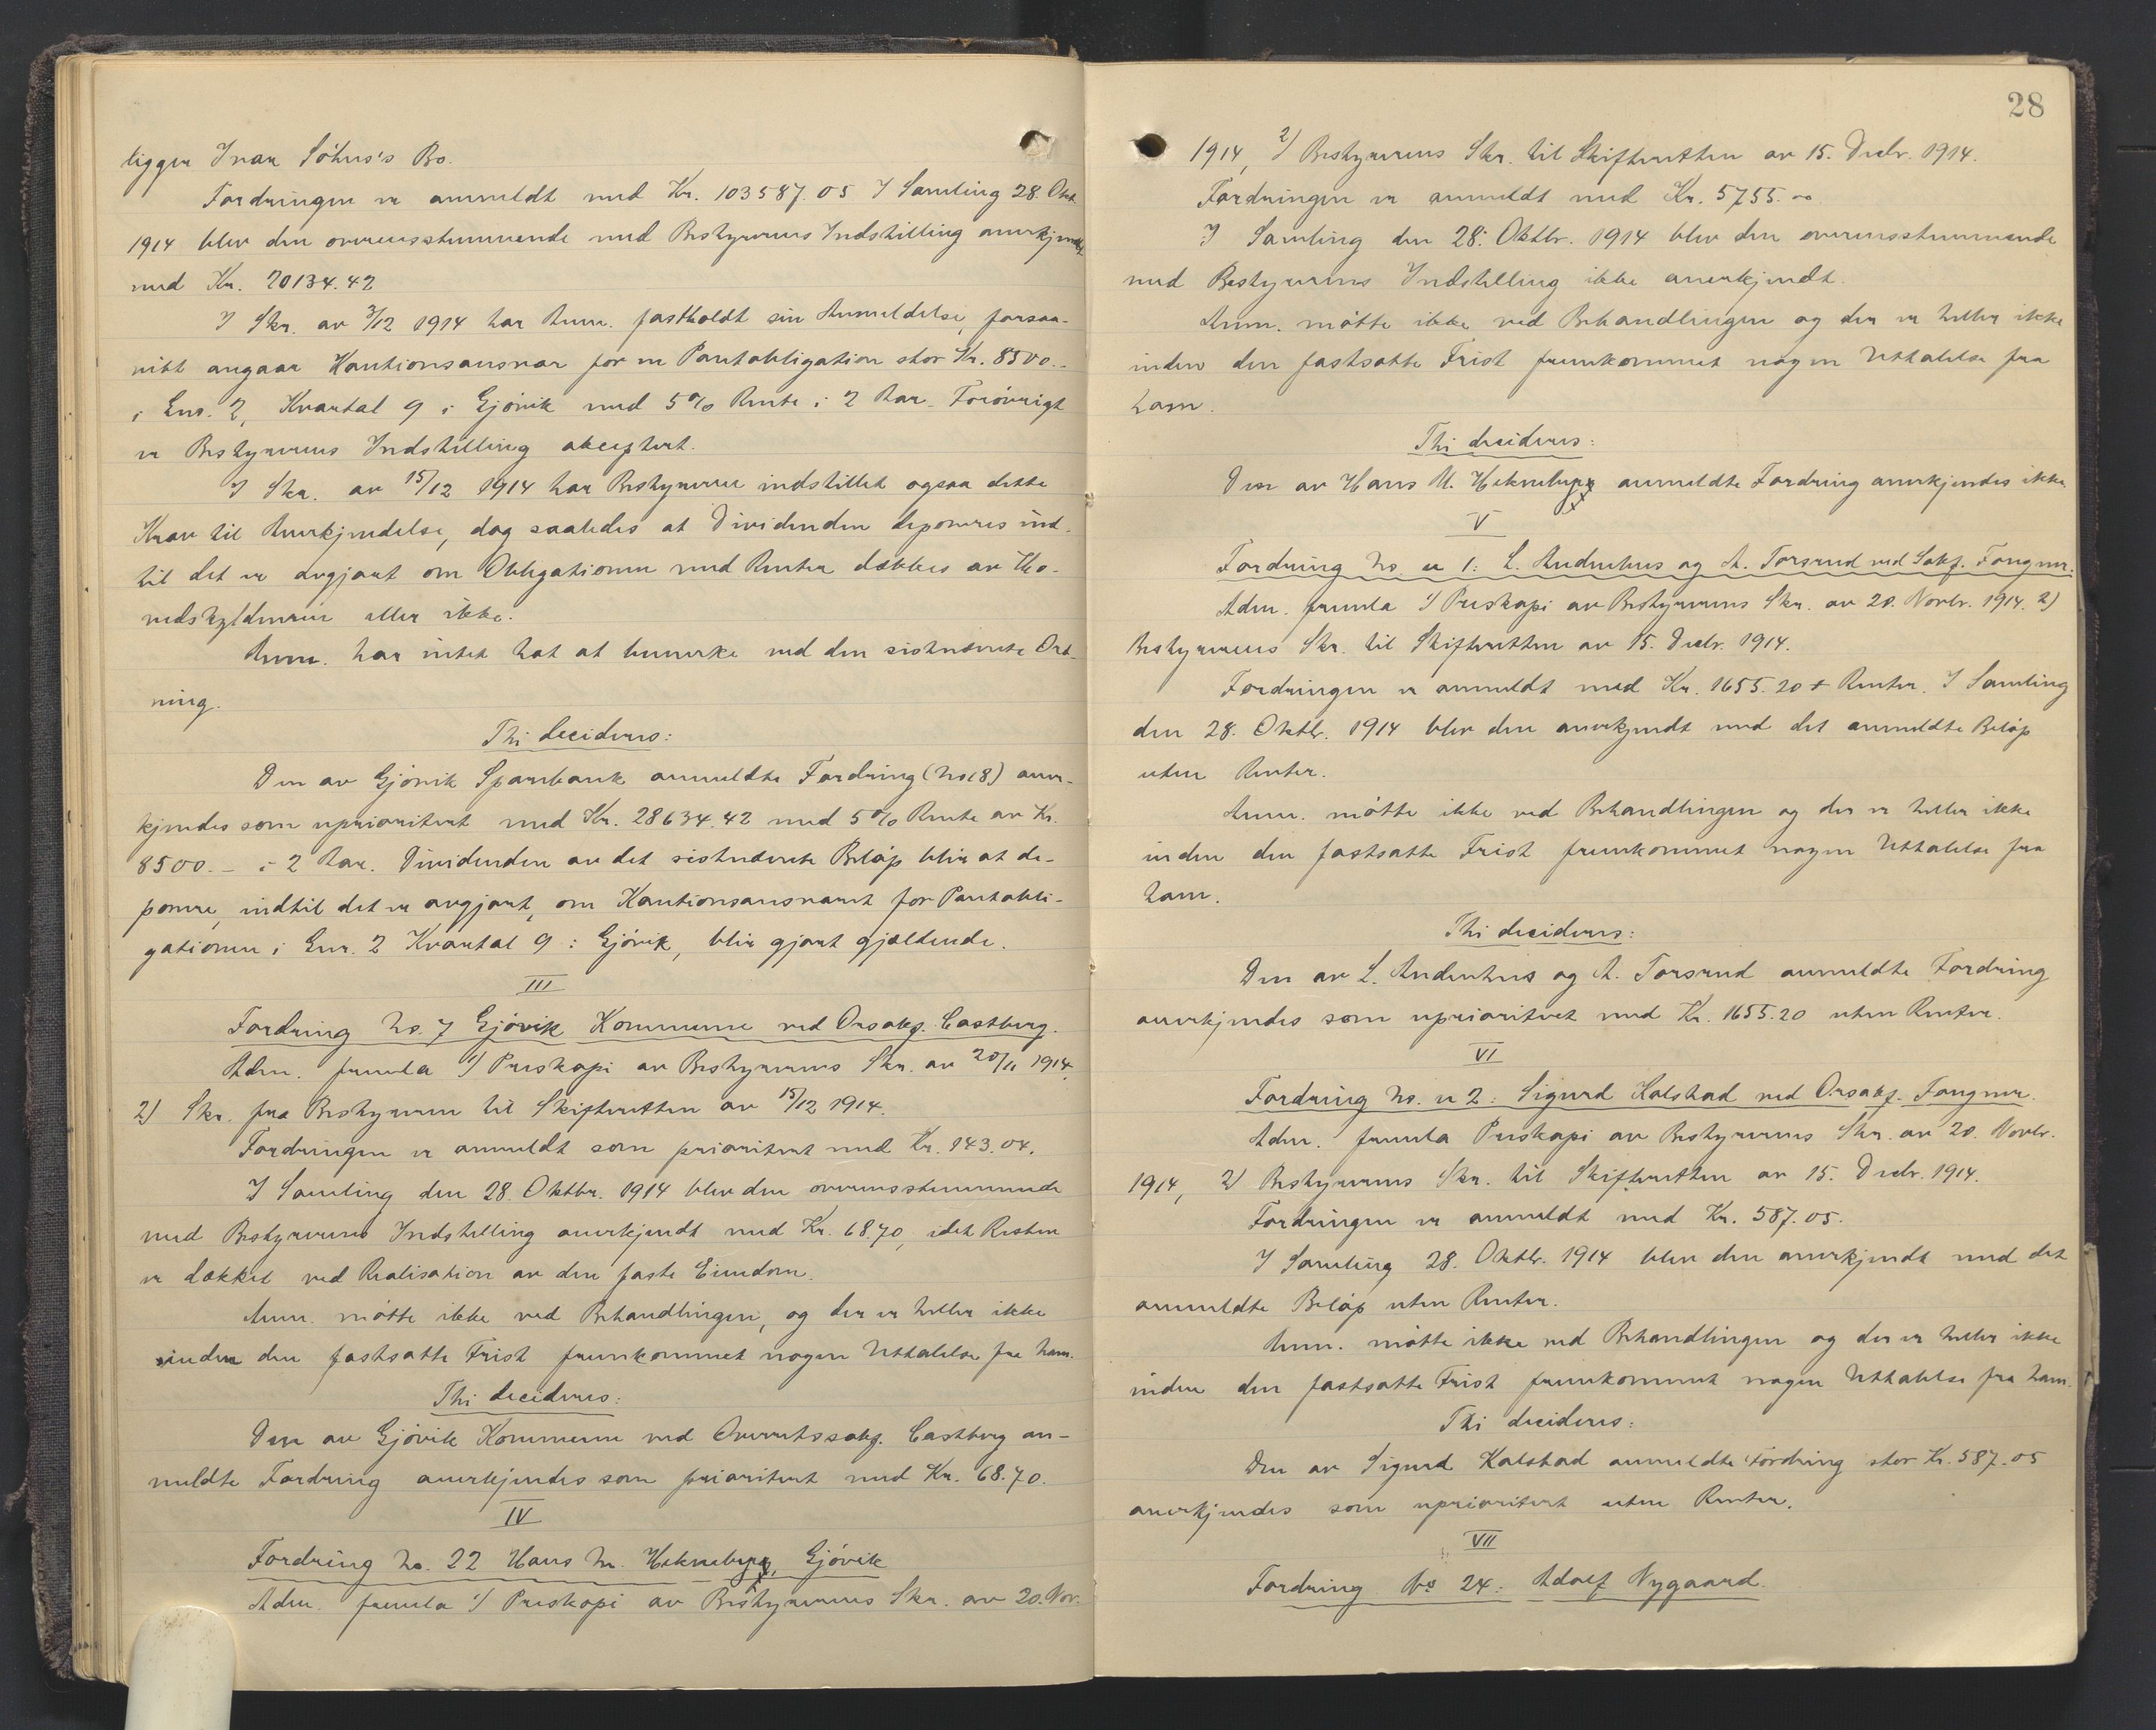 ligger Ivar Söhus's Bo.
Fordringen er anmeldt med Kr. 103587.05 I Samling 28. Okt
1914 blev den overensstemmende med Bestyrerens Indstilling anerkjendt
med Kr. 20134.42
I Skr. av 3/12 1914 har Anm. fastholdt sin Anmeldelse, forsaa-
vidt angaar Kautionsansvar for en Pantobligation stor Kr. 8500.-
i Enr. 2, Kvartal 9 i Gjövik med 5% Rente i 2 Aar. Forövrigt
er Bestyrerens Indstilling akceptert.
I Skr. av 15/12 1914 har Bestyreren indstillet ogsaa dette
Krav til Anerkjendelse, dog saaledes at Dividenden deponeres ind-
til det er avgjort om Obligationen med Renter dækkes av Ho-
vedskyldneren eller ikke.
Anm. har intet hat at bemerke ved den sistnævnte Ord-
ning.
Thi decideres:
Den av Gjövik Sparebank anmeldte Fordring (No 18) aner-
kjendes som uprioritert med Kr. 28634.42 med 5% Rente av Kr.
8500.- i 2 Aar. Dividenden av det sistnævnte Belöp blir at de-
ponere, indtil det er avgjort, om Kautionsansvaret for Pantobli-
gationen i Enr. 2 Kvartal 9 i Gjövik, blir gjort gjældende.
III
Fordring No. 7 Gjövik Kommune ved Orsakf. Castberg.
Adm. fremla 1/ Preskopi av Bestyrerens Skr. av 20/11 1914,
2) Skr. fra Bestyreren til Skifteretten av 15/12 1914.
Fordringen er anmeldt som prioritert med Kr. 143.04.
I Samling den 28. Oktbr. 1914 blev den overensstemmende
med Bestyrerens Indstilling anerkjendt med Kr. 68.70, idet Resten
er dækket ved Realisation av den faste Eiendom.
Anm. mötte ikke ved Behandlingen, og der er heller ikke
inden den fastsatte Frist fremkommet nogen Uttalelse fra ham.
Thi decideres:
Den av Gjövik Kommune ved Overretssakf. Castberg an-
meldte Fordring anerkjendes som prioritert med Kr. 68.70.
IV
Fordring No. 22 Hans M. Gjövik
Adm. fremla 1/ Preskopi av Bestyrerens Skr. av 20. Nov.
28
1914, 2) Bestyrerens Skr. til Skifteretten av 15. Decbr. 1914.
Fordringen er anmeldt med Kr. 5755.00
I Samling den 28. Oktbr. 1914 blev den overensstemmende
med Bestyrerens Indstilling ikke anerkjendt.
Anm. mötte ikke ved Behandlingen og der er heller ikke
inden den fastsatte Frist fremkommet nogen Uttalelse fra
ham.
Thi decideres:
Den av Hans M. anmeldte Fordring anerkjendes ikke.
V
Fordring No. u 1: L. Audenhus og A. Torsrud ved Sakf. Fougner.
Adm. fremla 1/ Preskopi av Bestyrerens Skr. av 20. Novbr. 1914. 2)
Bestyrerens Skr. til Skifteretten av 15. Decbr. 1914.
Fordringen er anmeldt med Kr. 1655.20 + Renter. I Samling
den 28. Oktbr. 1914 blev den anerkjendt med det anmeldte Belöp
uten Renter.
Anm. mötte ikke ved Behandlingen og der er heller ikke
inden den fastsatte Frist fremkommet nogen Uttalelse fra
ham.
Thi decideres:
Den av L. Audenhus og A. Torsrud anmeldte Fordring
anerkjendes som uprioritert med Kr. 1655.20 uten Renter.
VI
Fordring No. u 2: Sigurd Kalstad ved Orsakf. Fougner.
Adm. fremla Preskopi av Bestyrerens Skr. av 20. Novbr.
1914, 2) Bestyrerens Skr. til Skifteretten av 15. Decbr. 1914.
Fordringen er anmeldt med Kr. 587.05.
I Samling 28. Oktbr. 1914 blev den anerkjendt med det
anmeldte Belöp uten Renter.
Anm. mötte ikke ved Behandlingen og der er heller ikke
inden den fastsatte Frist fremkommet nogen Uttalelse fra ham.
Thi decideres:
Den av Sigurd Kalstad anmeldte Fordring stor Kr. 587.05
anerkjendes som uprioritert uten Renter.
VII
Fordring No 24: Adolf Nygaard.